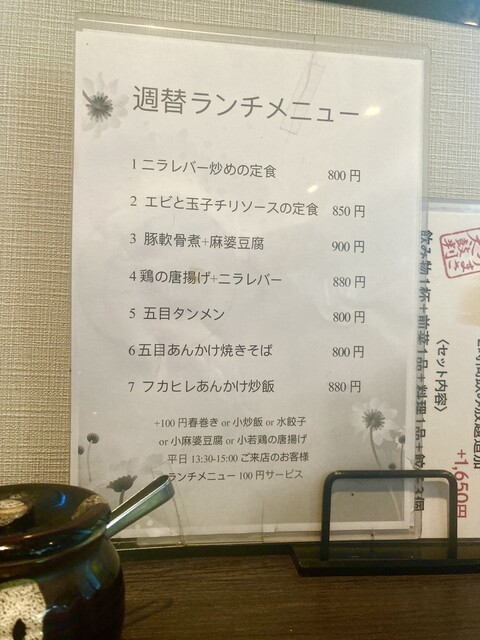 週替ランチメニュー
1 ニラレバー炒めの定食 800 円
2 エビと玉子チリソースの定食 850 円
3 豚軟骨煮+麻婆豆腐 900 円
4 鶏の唐揚げ+ニラレバー 880 円
5 五目タンメン 800 円
6 五目あんかけ焼きそば 800 円
7 フカヒレあんかけ炒飯 880 円
+100 円春巻き or 小炒飯 or 水餃子
or 小麻婆豆腐 or 小若鶏の唐揚げ
平日 13:30-15:00 ご来店のお客様
ランチメニュー 100 円サービス
〈セット内容〉
飲み物1杯+前菜1品+料理1品+
+1,650円